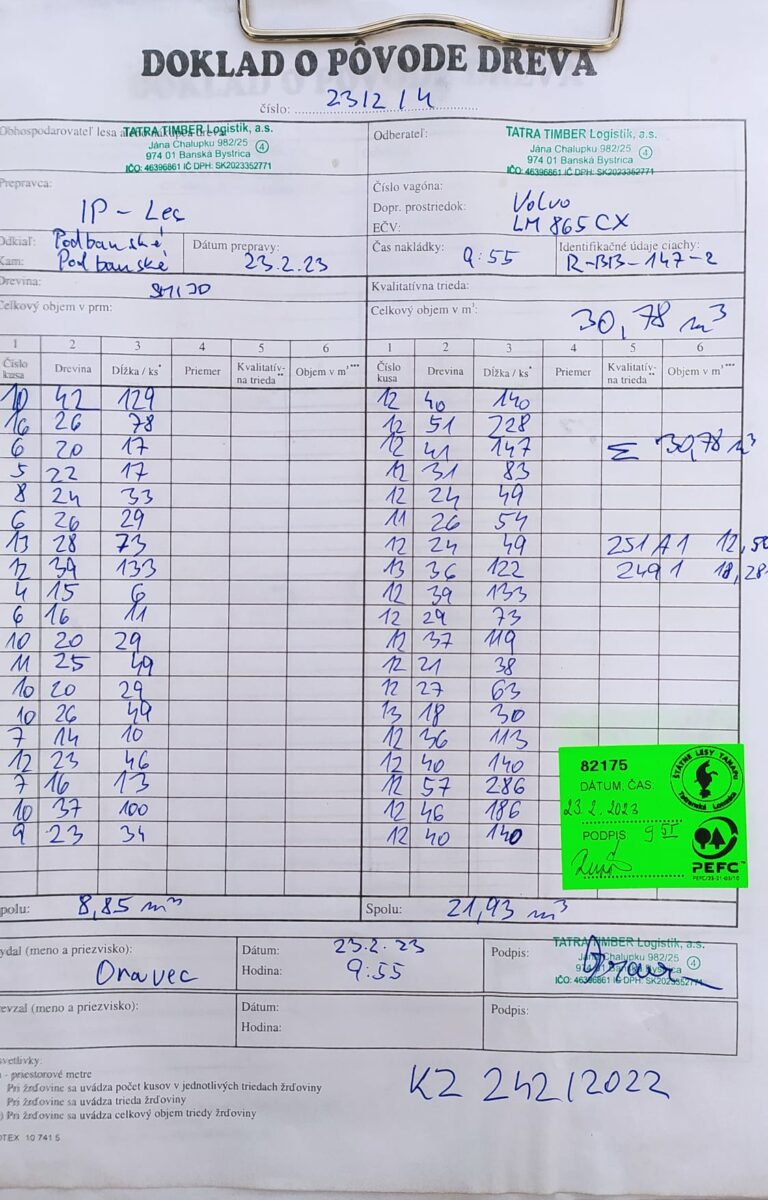 DOKLAD O PÔVODE DREVA
číslo: 23/2/4
Obhospodarovateľ lesa
TATRA TIMBER Logistik, a.s.
Jána Chalupku 982/25
974 01 Banská Bystrica
4
IČO: 46396861 IČ DPH: SK2023352771
Odberateľ:
TATRA TIMBER Logistik, a.s.
Jána Chalupku 982/25
974 01 Banská Bystrica
4
IČO: 46396861 IČ DPH: SK2023352771
Prepravca:
IP - Les
Číslo vagóna:
Dopr. prostriedok: Volvo
EČV: LM 865 CX
Odkiaľ: Podbanské
Kam: Podbanské
Dátum prepravy:
23.2.23
Čas nakládky:
9:55
Identifikačné údaje ciachy:
R-BB-147-2
Drevina:
Kvalitatívna trieda:
Celkový objem v prm:
Celkový objem v m³: 30,78 m³
1 2 3 4 5 6 1 2 3 4 5 6
Číslo kusa Drevina Dĺžka / ks* Priemer Kvalitatív-na trieda** Objem v m³*** Číslo kusa Drevina Dĺžka / ks* Priemer Kvalitatív-na trieda** Objem v m³***
10 42 129 12 40 140
16 26 78 12 51 228
6 20 17 12 41 147 Σ 30,78 m³
5 22 17 12 31 83
8 24 33 12 24 49
6 26 29 11 26 54
13 28 73 12 24 49 251 A 1 12,50
12 39 133 13 36 122 249 1 18,28
4 15 6 12 39 133
6 16 11 12 29 73
10 20 29 12 37 119
11 25 49 12 21 38
10 20 29 12 27 63
10 26 49 13 18 30
7 14 10 12 36 113
12 23 46 12 40 140
7 16 13 12 57 286
10 37 100 12 46 186
9 23 34 12 40 140
82175
DÁTUM, ČAS
23.2.2023
PODPIS 9 55
ŠTÁTNE LESY TANAPU
Tatranská Lomnica
PEFC
PEFC/25-21-03/10
Spolu: 8,85 m³
Spolu: 21,93 m³
Vydal (meno a priezvisko):
Oravec
Dátum: 23.2.23
Hodina: 9:55
Podpis:
TATRA TIMBER Logistik, a.s.
Jána Chalupku 982/25
974 01 Banská Bystrica
4
IČO: 46396861 IČ DPH: SK2023352771
Prevzal (meno a priezvisko):
Dátum:
Hodina:
Podpis:
Vysvetlivky:
- priestorové metre
Pri žrďovine sa uvádza počet kusov v jednotlivých triedach žrďoviny
Pri žrďovine sa uvádza trieda žrďoviny
) Pri žrďovine sa uvádza celkový objem triedy žrďoviny
KZ 242/2022
OTEX 10 741 5